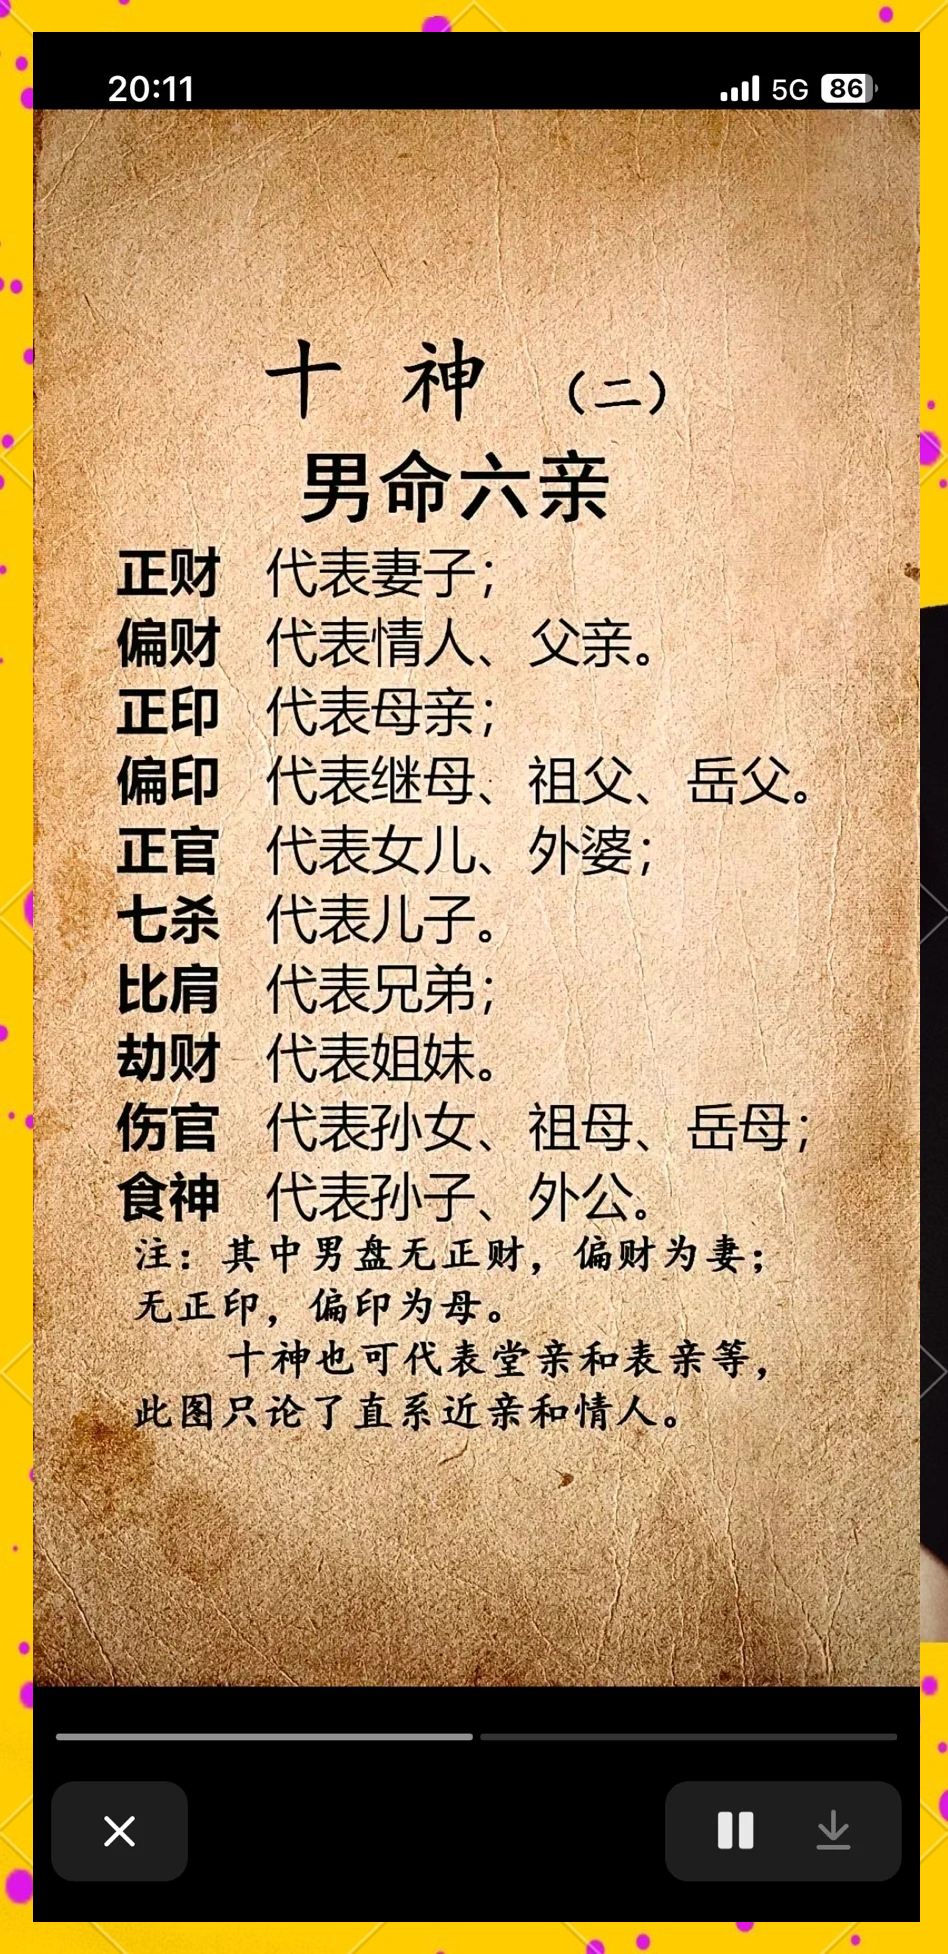 20:11 5G 86
十 神 （二）
男命六亲
正财 代表妻子；
偏财 代表情人、父亲。
正印 代表母亲；
偏印 代表继母、祖父、岳父。
正官 代表女儿、外婆；
七杀 代表儿子。
比肩 代表兄弟；
劫财 代表姐妹。
伤官 代表孙女、祖母、岳母；
食神 代表孙子、外公。
注：其中男盘无正财，偏财为妻；
无正印，偏印为母。
十神也可代表堂亲和表亲等，
此图只论了直系近亲和情人。